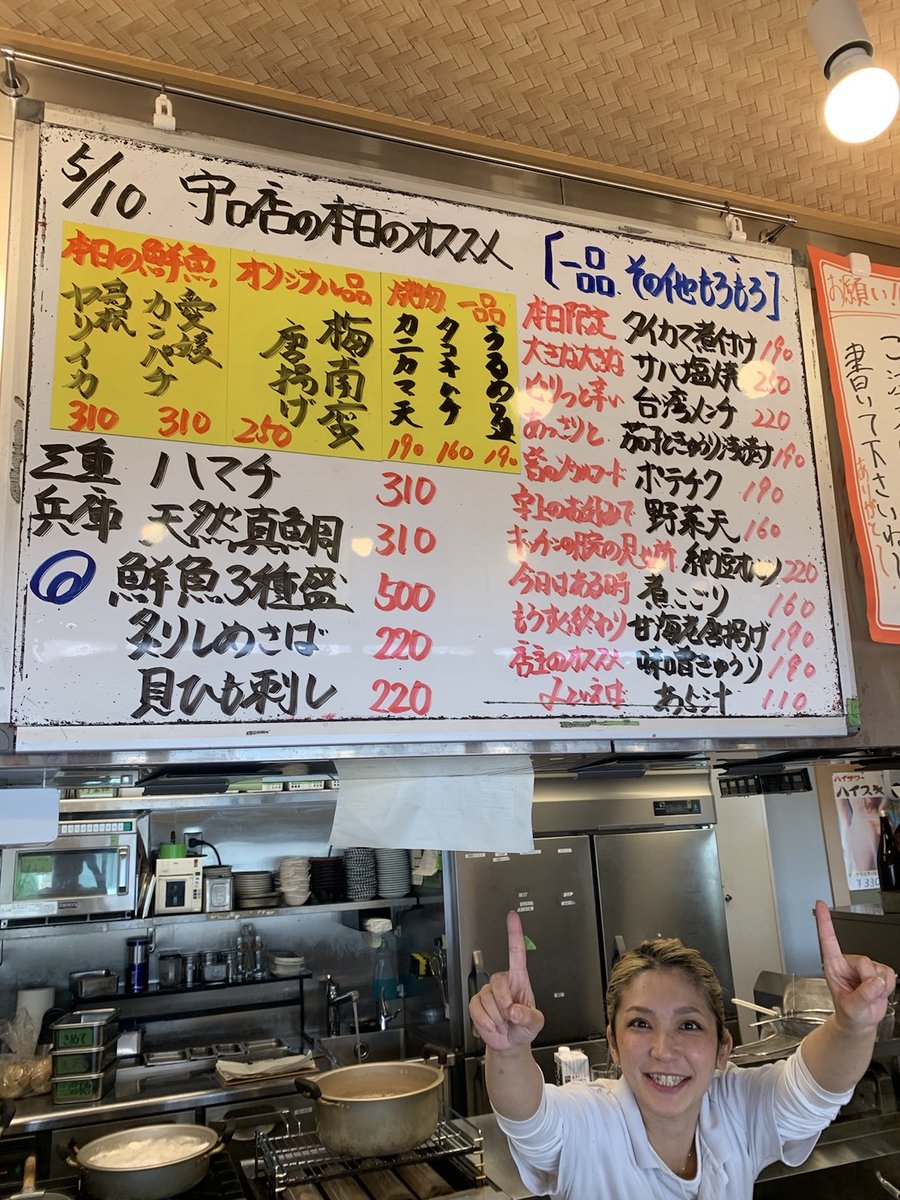 5/10 守口店の本日のオススメ
本日の鮮魚
愛媛 カンパチ 310
ヤリイカ 310
オリジナル品
梅南蛮唐揚げ 250
焼物
カニカマ天 190
一品
タコキムチ 160
うるめ 190
三重 ハマチ 310
兵庫 天然真鯛 310
鮮魚3種盛 500
炙りしめさば 220
貝ひも刺し 220
[一品 その他もろもろ]
本日限定 タイカマ煮付け 190
大きな大きな サバ塩焼 250
ピリッと辛い 台湾メンチ 220
あっさりと 茄子ときゅうり浅漬け 190
ポテチク 190
野菜天 160
キッチンの腕の見せ所 納豆オムレツ 220
今日はある時 煮こごり 160
もうすぐ終わり 甘海老唐揚げ 190
店主のオススメ 味噌きゅうり 190
あら汁 110
お願い!!
書いて下さいね
ハイサワー
ハイスキ
¥330